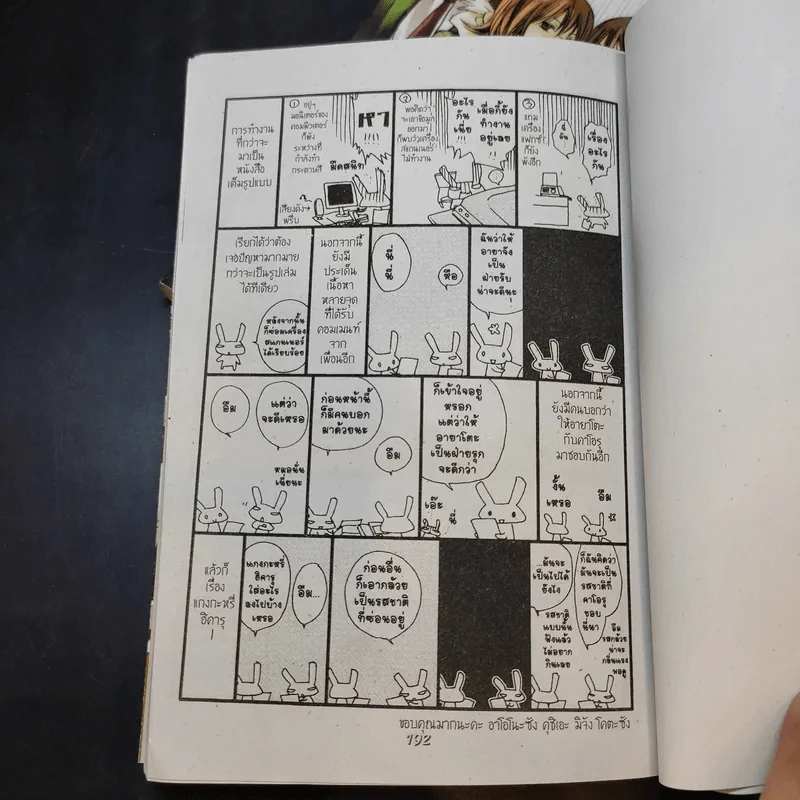 การทำงาน
ที่กว่าจะ
มาเป็น
หนังสือ
เต็มรูปแบบ
① อยู่ๆ
มอนิเตอร์ของ
คอมพิวเตอร์
ก็พัง
ระหว่างที่
กำลังทำ
กระดาษสี
หา
!!!
มืดสนิท
เสียงดัง
พรึบ
② พอคิดว่า
จะเอาข้อมูล
ออกมา
ก็พบว่าเครื่อง
สแกนเนอร์
ไม่ทำงาน
อะไร
กัน
เนี่ย
!!!
เมื่อกี้ยัง
ทำงาน
อยู่เลย
③
แถม
เครื่อง
แฟกซ์
ก็ยัง
พังอีก
นี่
มัน
เรื่อง
อะไร
กัน
เรียกได้ว่าต้อง
เจอปัญหามากมาย
กว่าจะเป็นรูปเล่ม
ได้ทีเดียว
หลังจากนั้น
ก็ซ่อมเครื่อง
สแกนเนอร์
ได้เรียบร้อย
นอกจากนี้
ยังมี
ประเด็น
เนื้อหา
หลายจุด
ที่ได้รับ
คอมเมนท์
จาก
เพื่อนอีก
นี่
นี่
หือ
ฉันว่าให้
อายาจัง
เป็น
ฝ่ายรับ
น่าจะดีนะ
อืม
แต่ว่า
จะดีเหรอ
หมอนั่น
เนี่ยนะ
ก่อนหน้านี้
ก็มีคนบอก
มาด้วยนะ
อืม
ก็เข้าใจอยู่
หรอก
แต่ว่าให้
อายาโตะ
เป็นฝ่ายรุก
จะดีกว่า
เอ๊ะ
นี่
นอกจากนี้
ยังมีคนบอกว่า
ให้อายาโตะ
กับคาโอรุ
มาชอบกันอีก
งั้น
เหรอ
อืม
แล้วก็
เรื่อง
แกงกะหรี่
ฮิคารุ
แกงกะหรี่
ฮิคารุ
ใส่อะไร
ลงไปบ้าง
เหรอ
อืม...
ก่อนอื่น
ก็เอากล้วย
เป็นรสชาติ
ที่ซ่อนอยู่
...มันจะ
เป็นไปได้
ยังไง
รสชาติ
แบบนั้น
ฟังแล้ว
ไม่อยาก
กินเลย
ก็ฉันคิดว่า
มันจะเป็น
รสชาติที่
คาโอรุ
ชอบ
นี่นา
อืม
รสกล้วย
น่าจะ
กลิ่นแรง
พอดู
ขอบคุณมากนะคะ อาโอโนะซัง คุชิเอะ มิจัง โคตะซัง
192